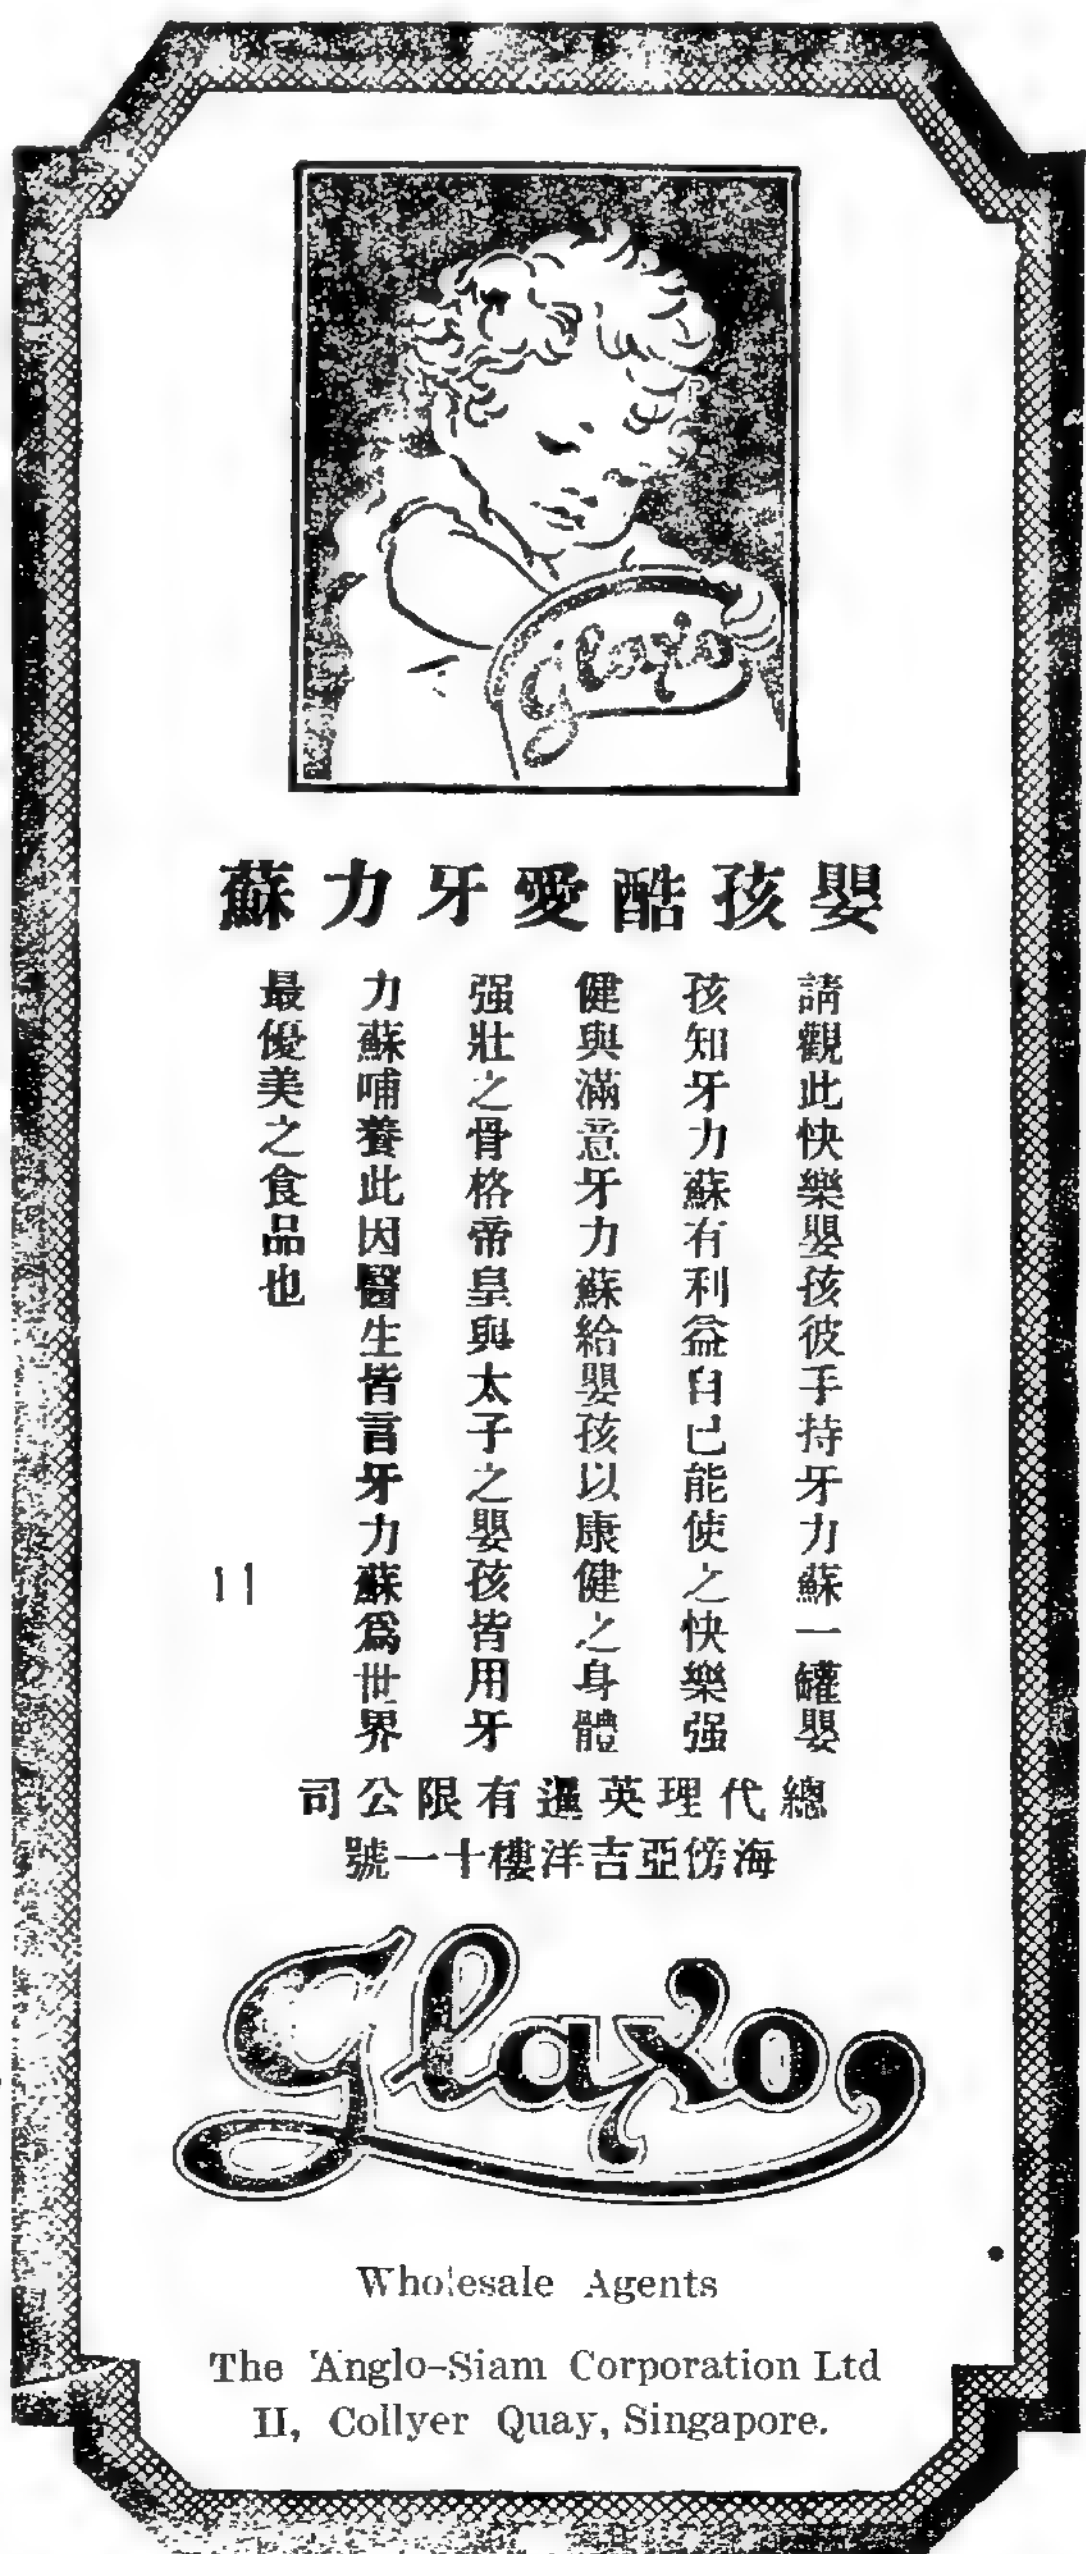 Glaxo
嬰孩酷愛牙力蘇
請觀此快樂嬰孩彼手持牙力蘇一罐嬰
孩知牙力蘇有利益自己能使之快樂强
健與滿意牙力蘇給嬰孩以康健之身體
强壯之骨格帝皇與太子之嬰孩皆用牙
力蘇哺養此因醫生皆言牙力蘇爲世界
最優美之食品也
11
總代理英暹有限公司
海傍亞吉洋樓十一號
Glaxo
Wholesale Agents
The Anglo-Siam Corporation Ltd
II, Collyer Quay, Singapore.